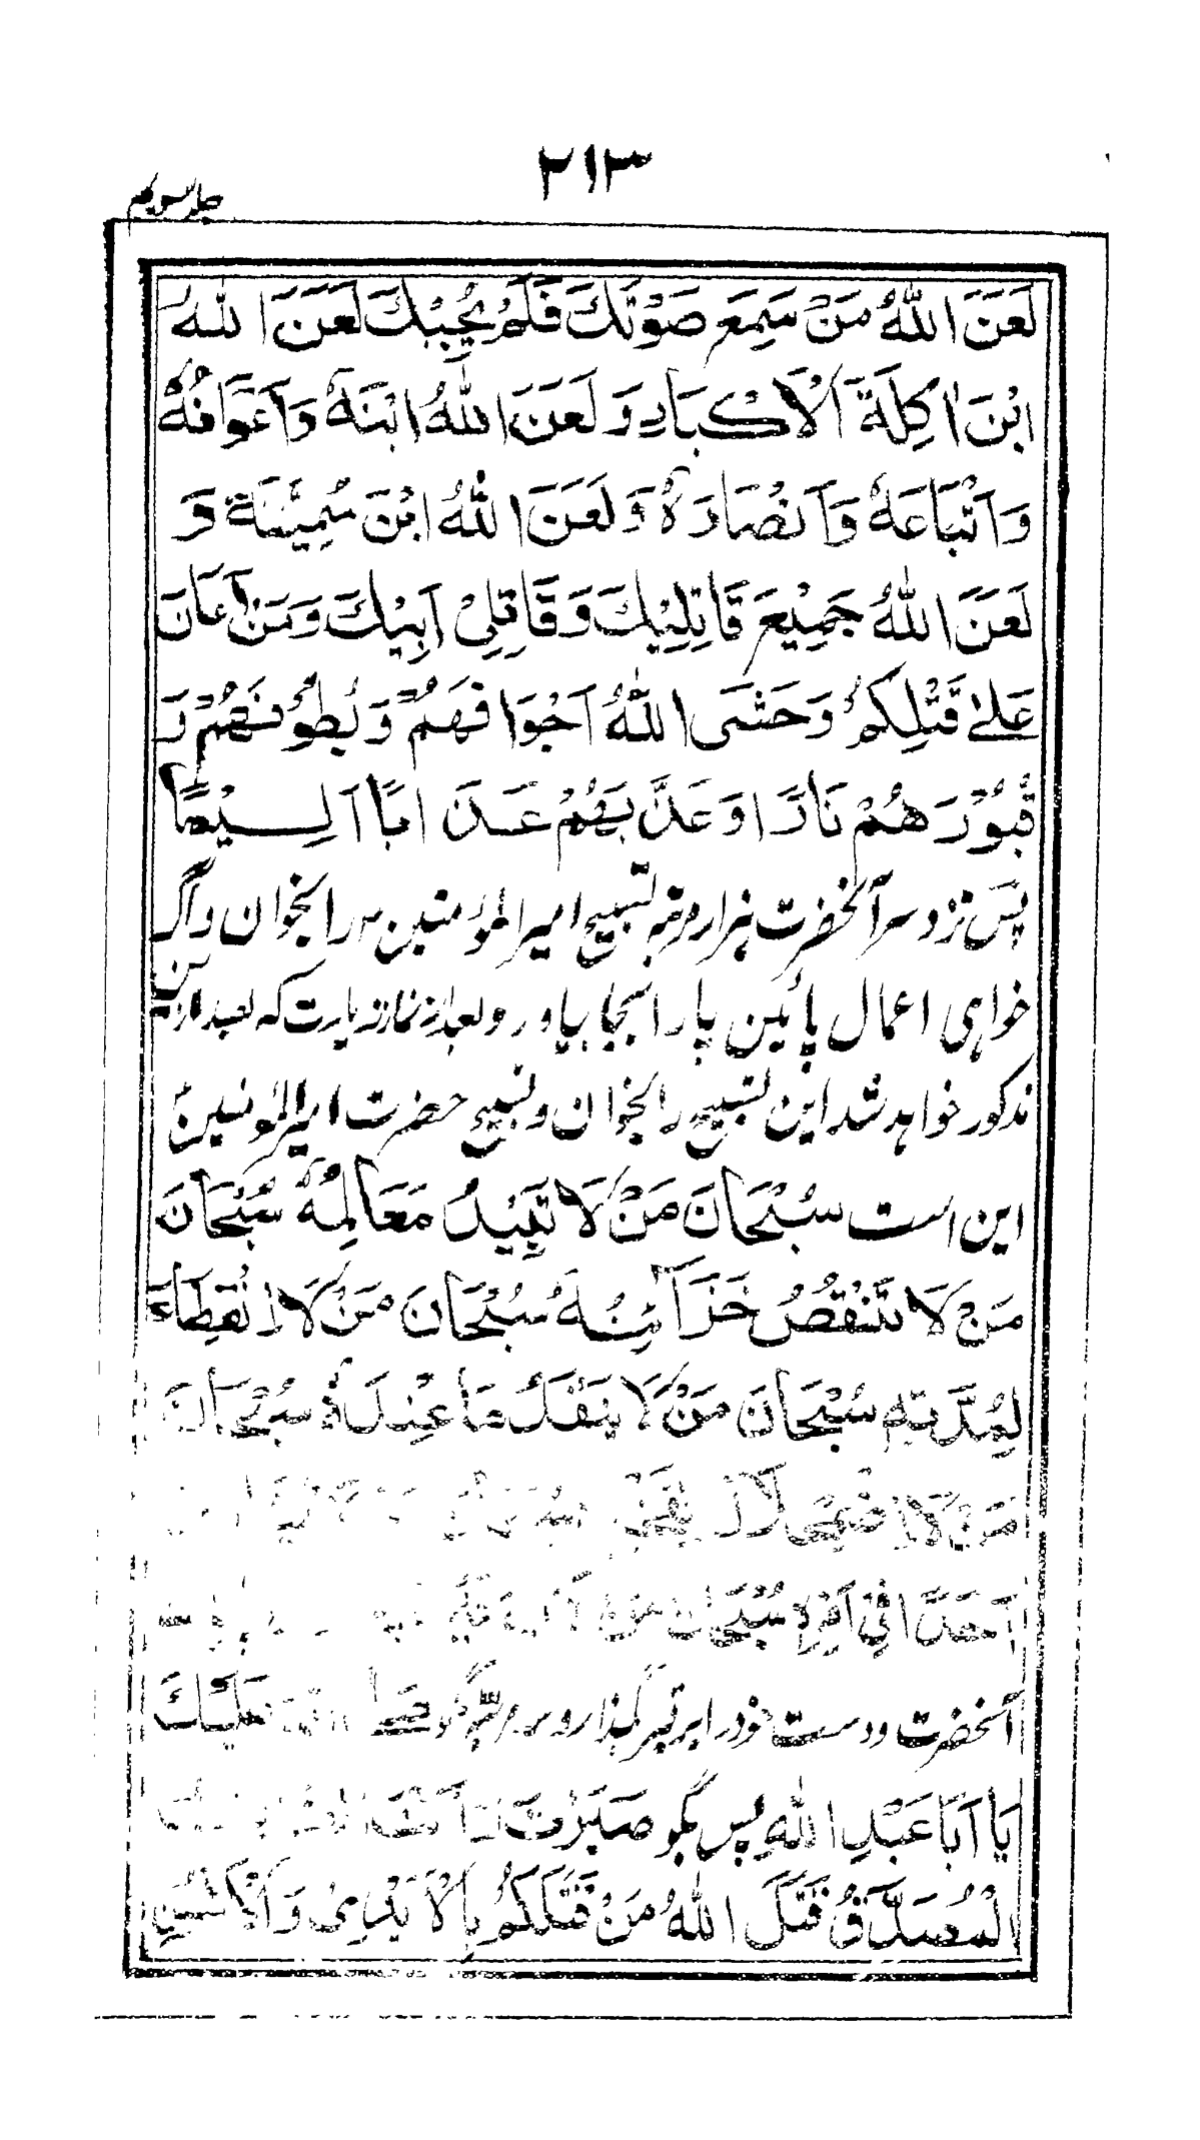 ۲۱۳
جلد سویم
لَعَنَ اللهُ مَنْ سَمِعَ صَوْتَكَ فَلَمْ يُجِبْكَ لَعَنَ اللهُ
ابْنَ اٰكِلَةَ الْاَكْبَادِ وَ لَعَنَ اللهُ ابْنَهُ وَاَعْوَانَهُ
وَاَتْبَاعَهُ وَاَنْصَارَهُ وَلَعَنَ اللهُ ابْنَ سُمَيَّةَ وَ
لَعَنَ اللهُ جَمِيْعَ قَاتِلِيْكَ وَقَاتِلِىْ اَبِيْكَ وَمَنْ اَعَانَ
عَلىٰ قَتْلِكُمْ وَحَشَى اللهُ اَجْوَافَهُمْ وَبُطُوْنَهُمْ وَ
قُبُوْرَهُمْ نَارًا وَعَذَّبَهُمْ عَذَابًا اَلِيْمًا
پس نزد سر آنحضرت ہزار مرتبہ تسبیح امیر المؤمنین را بخوان و اگر
خواہی اعمال پائین پا را بجا بیاور و بعد از نماز زیارت کہ بعد ازین
مذکور خواہد شد این تسبیح را بخوان و تسبیح حضرت امیر المومنین
این است سُبْحَانَ مَنْ لَا تَبِيْدُ مَعَالِمُهُ سُبْحَانَ
مَنْ لَا تَنْقُصُ خَزَآئِنُهُ سُبْحَانَ مَنْ لَا انْقِطَاعَ
لِمُدَّتِهِ سُبْحَانَ مَنْ لَا يَنْفَدُ مَا عِنْدَهُ سُبْحَانَ
مَنْ لَا اضْمِحْلَالَ لِفَخْرِهِ
اَحَدًا فِىْ اَمْرِهِ سُبْحَانَ مَنْ لَا
آنحضرت و دست خود را بر قبر بگذار و سه مرتبه بگو صَلَّى اللهُ عَلَيْكَ
يَا اَبَا عَبْدِ اللهِ پس بگو صَبَرْتَ
الْمُصَدَّقُ قَتَلَ اللهُ مَنْ قَتَلَكُمْ بِالْاَيْدِىْ وَالْاَلْسُنِ